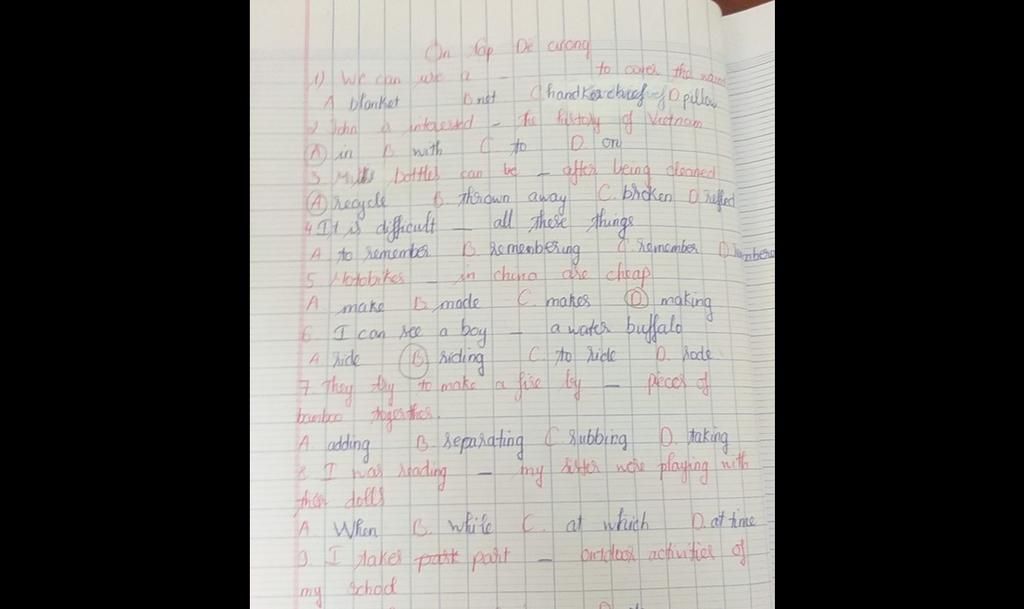 Ôn tập Đề cương
1) We can use a - to cover the
A blanket B net C handkerchief D pillow
2 John is interested - the history of Vietnam
A in B. with C to D on
3. Milk bottles can be - after being cleaned
A recycle B. thrown away C. broken D.
4 It is difficult - all these things
A to remember B. remembering C. remember D
5 Motobikes - in china are cheap
A. make B made C. makes D making
6. I can see a boy - a water buffalo
A ride B riding C. to ride D. rode
7. They try to make a fire by - pieces of
bamboo together.
A. adding B. separating C rubbing D. taking
8. I was reading - my sister were playing with
their dolls
A. When B. while C. at which D. at time
9. I takes part - outdoor activities of
my school